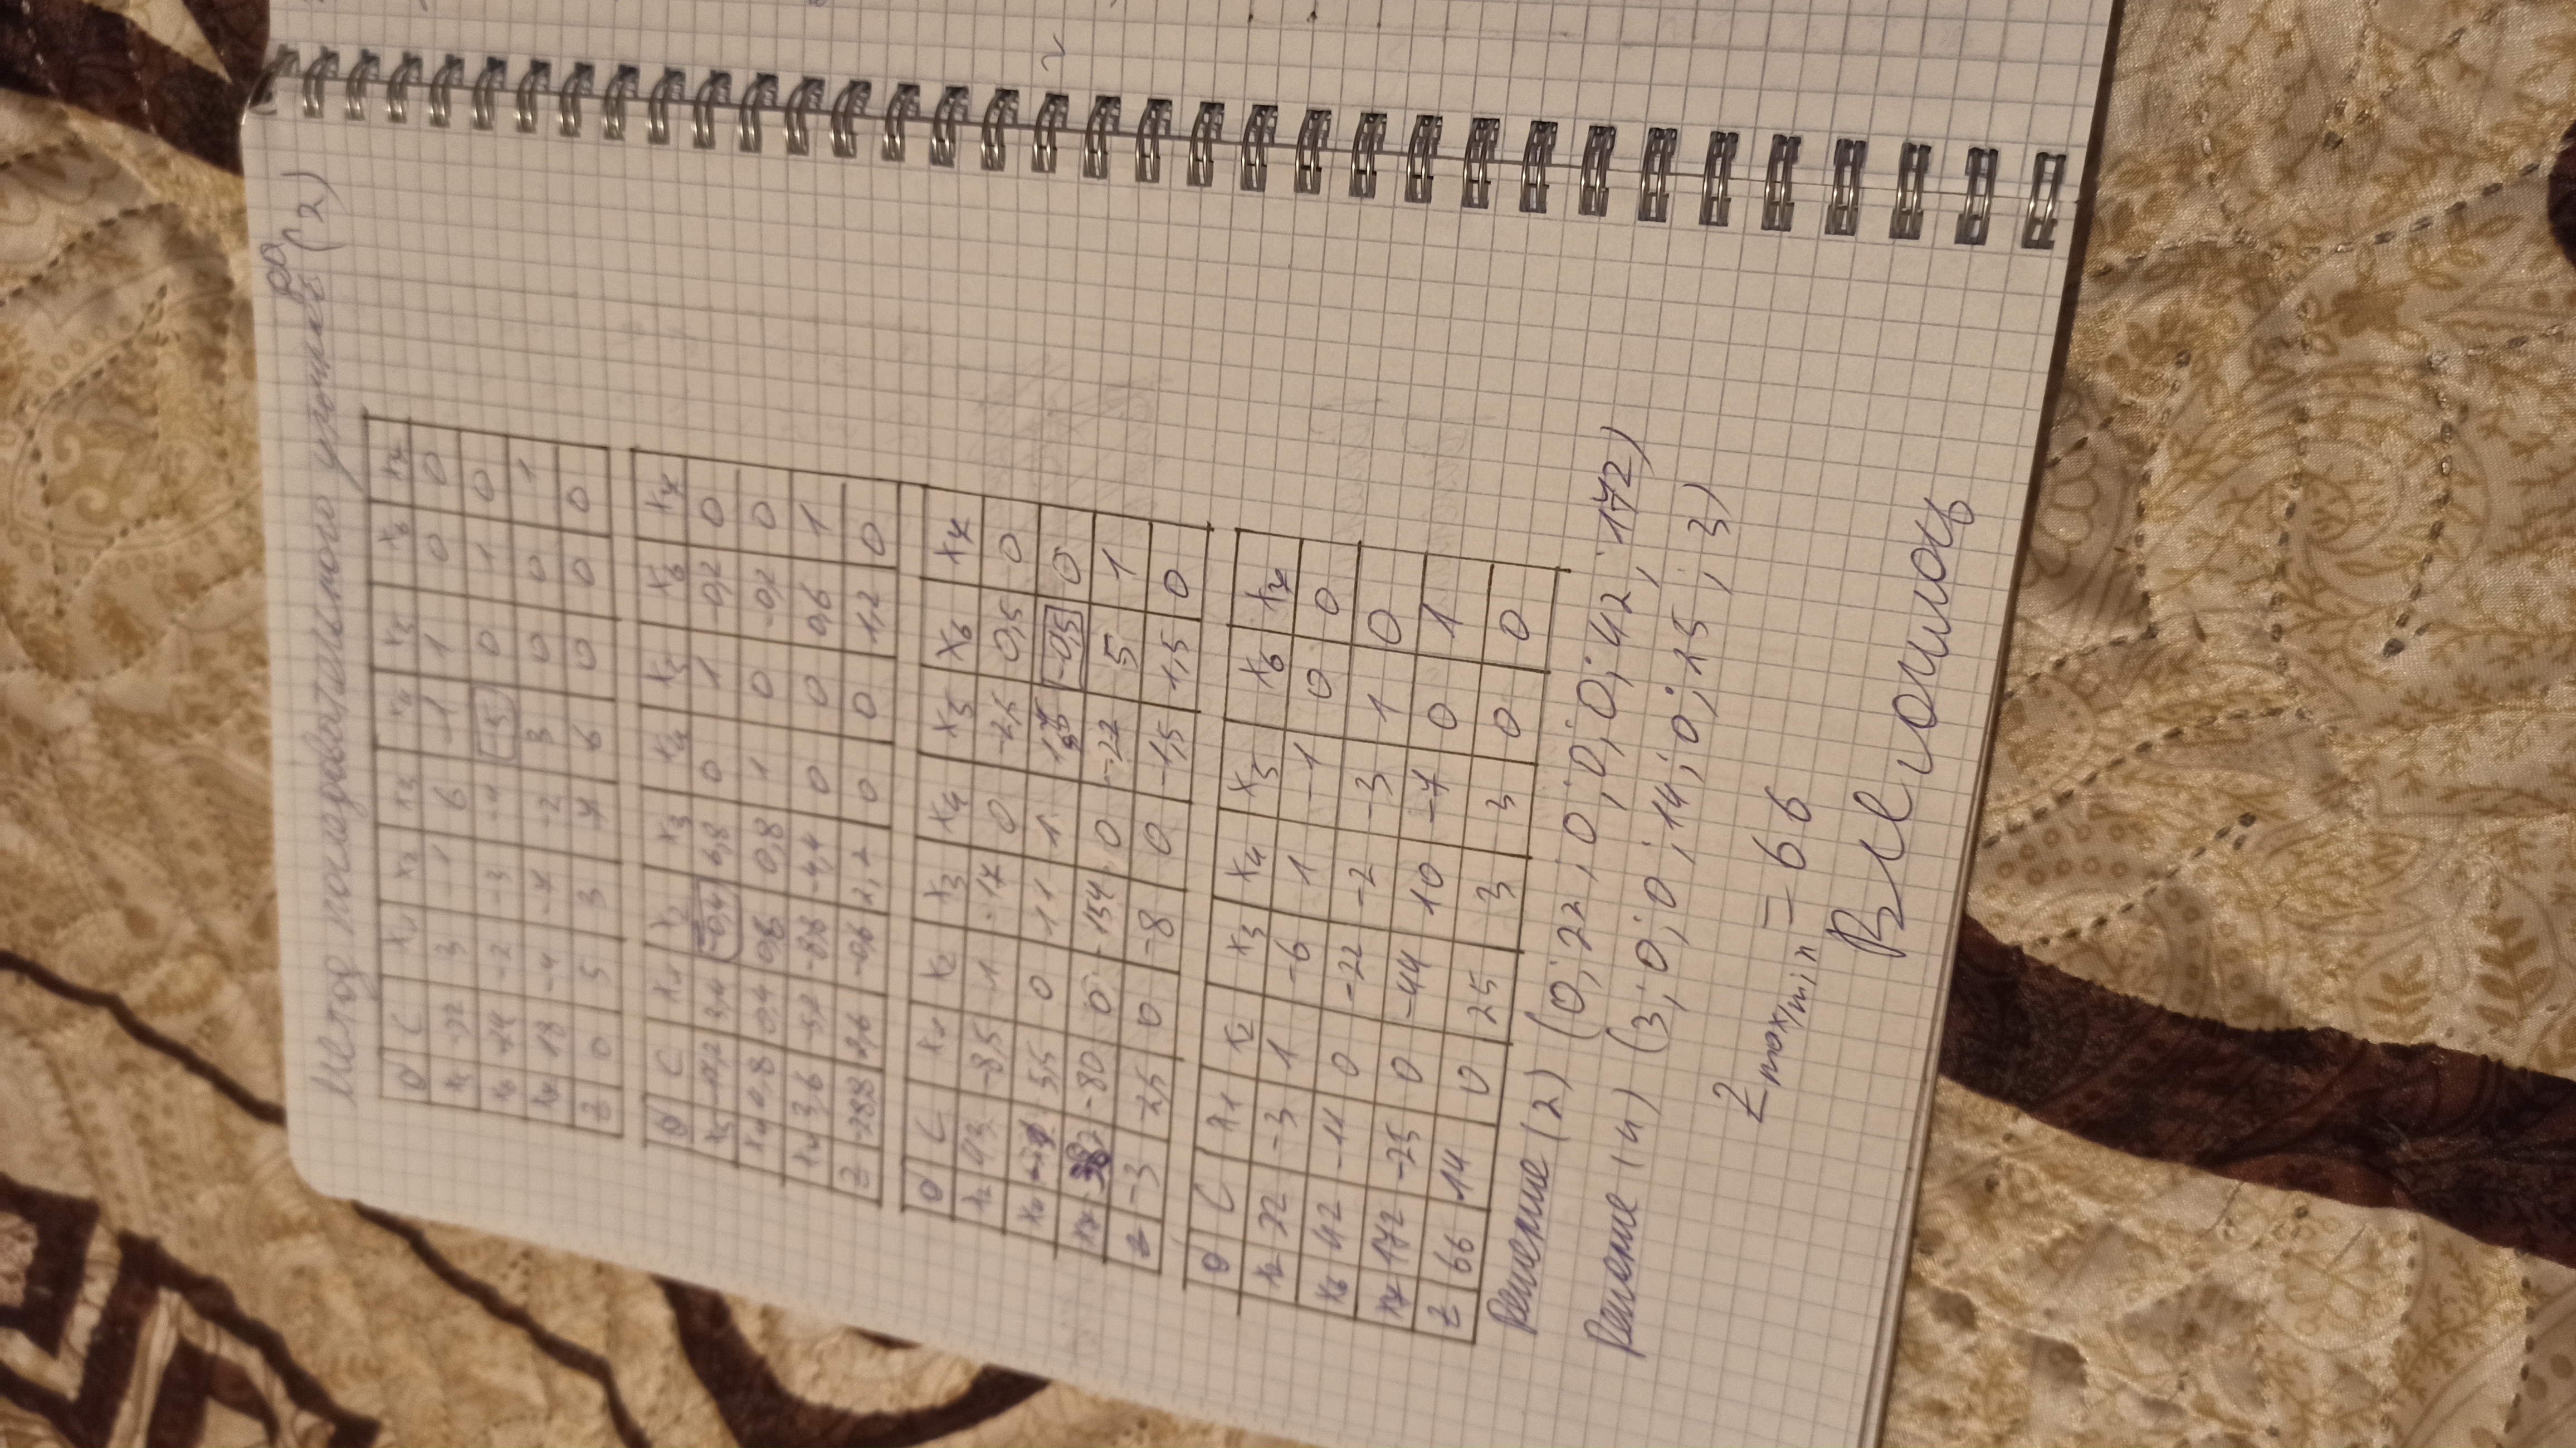 Метод последовательного уточнения (2)
б C x1 x2 x3 x4 x5 x6 x7
x5 -22 3 -1 6 -1 1 0 0
x6 -24 -2 -3 -4 -5 0 1 0
x7 18 -4 -7 -2 3 0 0 1
Z 0 5 3 7 6 0 0 0
б C x1 x2 x3 x4 x5 x6 x7
x5 -17,2 3,4 -0,4 6,8 0 1 -0,2 0
x4 4,8 0,4 0,6 0,8 1 0 -0,2 0
x7 3,6 -5,2 -8,8 -4,4 0 0 0,6 1
Z -28,8 2,6 -0,6 2,2 0 0 1,2 0
б C x1 x2 x3 x4 x5 x6 x7
x2 43 -8,5 1 -17 0 -2,5 0,5 0
x4 -21 5,5 0 11 1 1,5 -0,5 0
x7 382 -80 0 -154 0 -22 5 1
Z -3 -2,5 0 -8 0 -1,5 1,5 0
б C x1 x2 x3 x4 x5 x6 x7
x2 22 -3 1 -6 1 -1 0 0
x6 42 -11 0 -22 -2 -3 1 0
x7 172 -25 0 -44 10 -7 0 1
Z 66 14 0 25 3 3 0 0
Решение (2) (0; 22; 0; 0; 0; 42; 172)
Решение (4) (3; 0; 0; 14; 0; 25; 3)
Z max/min = 66
Все сошлось